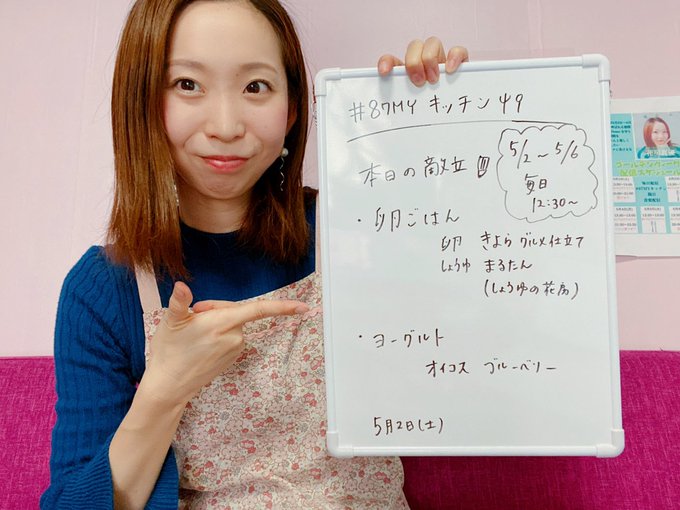 #87MYキッチン49
本日の献立
5/2〜5/6
毎日
12:30〜
・卵ごはん
卵 きよら グルメ仕立て
しょうゆ まるたん
(しょうゆの花房)
・ヨーグルト
オイコス ブルーベリー
5月2日(土)